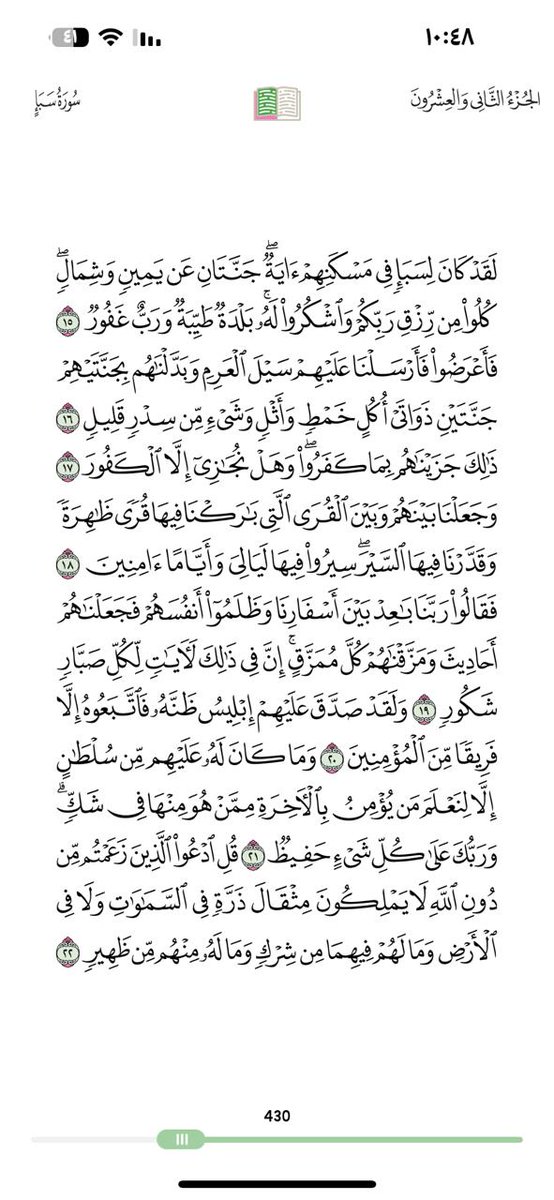 ١٠:٤٨
٤١
الجُزْءُ الثَّانِي وَالعِشْرُونَ
سُورَةُ سَبَإٍ
لَقَدْ كَانَ لِسَبَإٖ فِي مَسۡكَنِهِمۡ ءَايَةٞۖ جَنَّتَانِ عَن يَمِينٖ وَشِمَالٖۖ
كُلُواْ مِن رِّزۡقِ رَبِّكُمۡ وَٱشۡكُرُواْ لَهُۥۚ بَلۡدَةٞ طَيِّبَةٞ وَرَبٌّ غَفُورٞ ١٥
فَأَعۡرَضُواْ فَأَرۡسَلۡنَا عَلَيۡهِمۡ سَيۡلَ ٱلۡعَرِمِ وَبَدَّلۡنَٰهُم بِجَنَّتَيۡهِمۡ
جَنَّتَيۡنِ ذَوَاتَيۡ أُكُلٍ خَمۡطٖ وَأَثۡلٖ وَشَيۡءٖ مِّن سِدۡرٖ قَلِيلٖ ١٦
ذَٰلِكَ جَزَيۡنَٰهُم بِمَا كَفَرُواْۖ وَهَلۡ نُجَٰزِيٓ إِلَّا ٱلۡكَفُورَ ١٧
وَجَعَلۡنَا بَيۡنَهُمۡ وَبَيۡنَ ٱلۡقُرَى ٱلَّتِي بَٰرَكۡنَا فِيهَا قُرٗى ظَٰهِرَةٗ
وَقَدَّرۡنَا فِيهَا ٱلسَّيۡرَۖ سِيرُواْ فِيهَا لَيَالِيَ وَأَيَّامًا ءَامِنِينَ ١٨
فَقَالُواْ رَبَّنَا بَٰعِدۡ بَيۡنَ أَسۡفَارِنَا وَظَلَمُوٓاْ أَنفُسَهُمۡ فَجَعَلۡنَٰهُمۡ
أَحَادِيثَ وَمَزَّقۡنَٰهُمۡ كُلَّ مُمَزَّقٍۚ إِنَّ فِي ذَٰلِكَ لَأٓيَٰتٖ لِّكُلِّ صَبَّارٖ
شَكُورٖ ١٩ وَلَقَدۡ صَدَّقَ عَلَيۡهِمۡ إِبۡلِيسُ ظَنَّهُۥ فَٱتَّبَعُوهُ إِلَّا
فَرِيقٗا مِّنَ ٱلۡمُؤۡمِنِينَ ٢٠ وَمَا كَانَ لَهُۥ عَلَيۡهِم مِّن سُلۡطَٰنٍ
إِلَّا لِنَعۡلَمَ مَن يُؤۡمِنُ بِٱلۡأٓخِرَةِ مِمَّنۡ هُوَ مِنۡهَا فِي شَكّٖۗ
وَرَبُّكَ عَلَىٰ كُلِّ شَيۡءٍ حَفِيظٞ ٢١ قُلِ ٱدۡعُواْ ٱلَّذِينَ زَعَمۡتُم مِّن
دُونِ ٱللَّهِ لَا يَمۡلِكُونَ مِثۡقَالَ ذَرَّةٖ فِي ٱلسَّمَٰوَٰتِ وَلَا فِي
ٱلۡأَرۡضِ وَمَا لَهُمۡ فِيهِمَا مِن شِرۡكٖ وَمَا لَهُۥ مِنۡهُم مِّن ظَهِيرٖ ٢٢
430